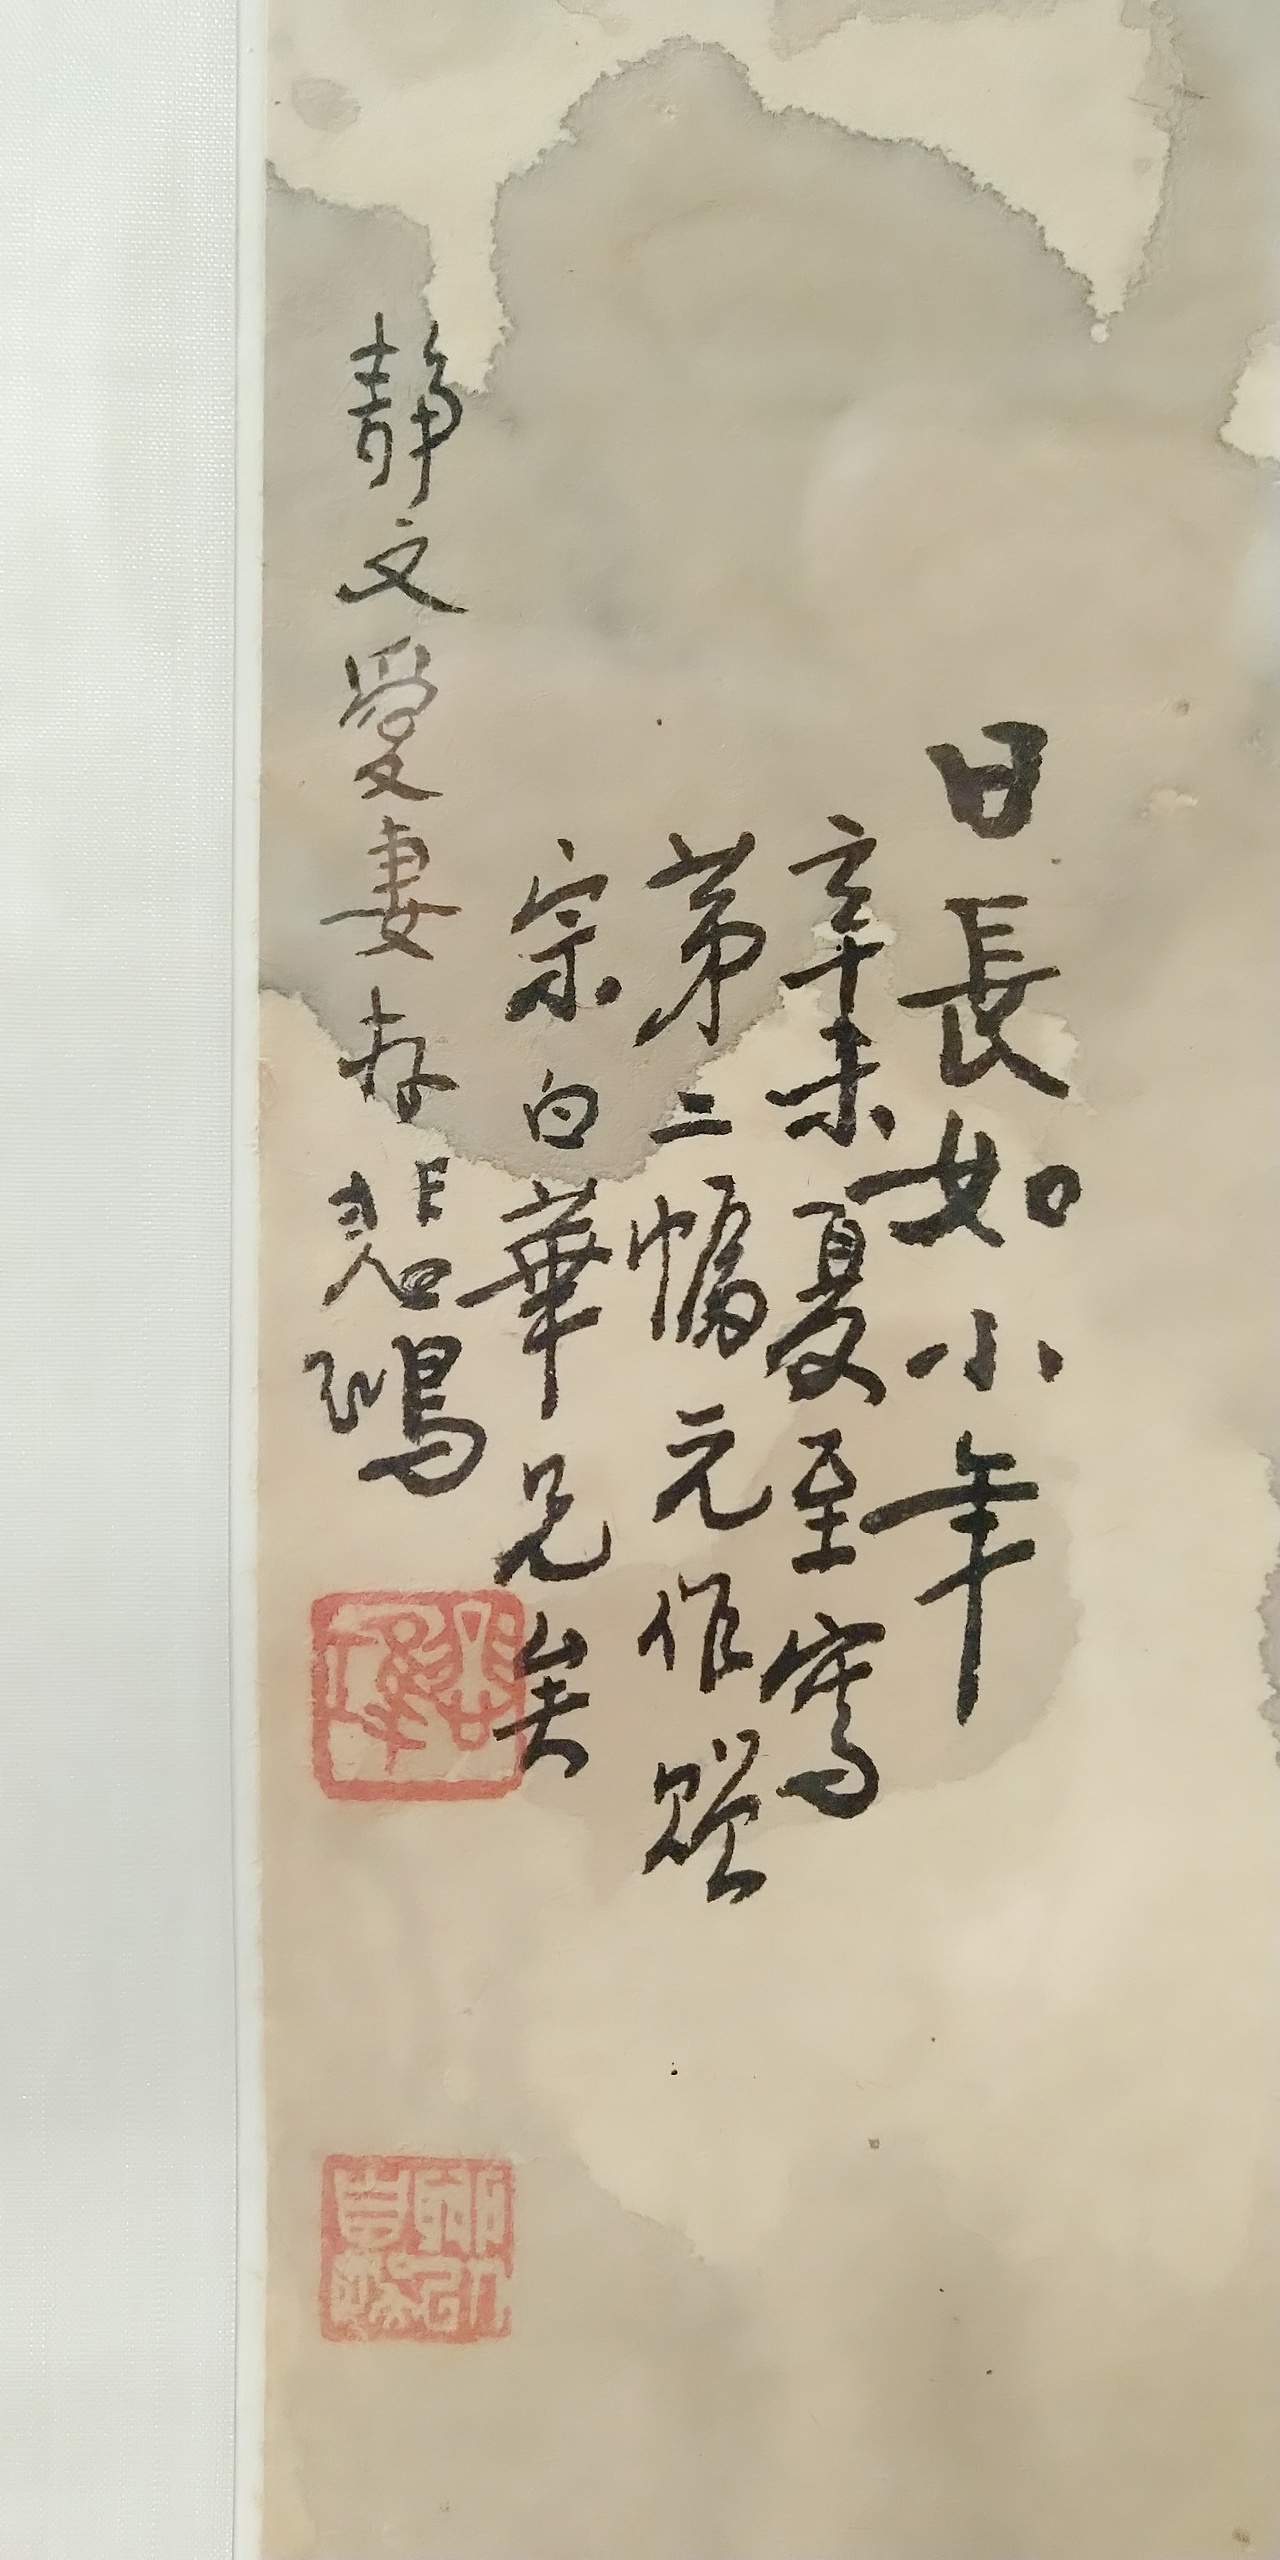 日長如小年
辛未夏至寫
苐二幅元作贈
宗白華兄矣
静文愛妻存悲鴻